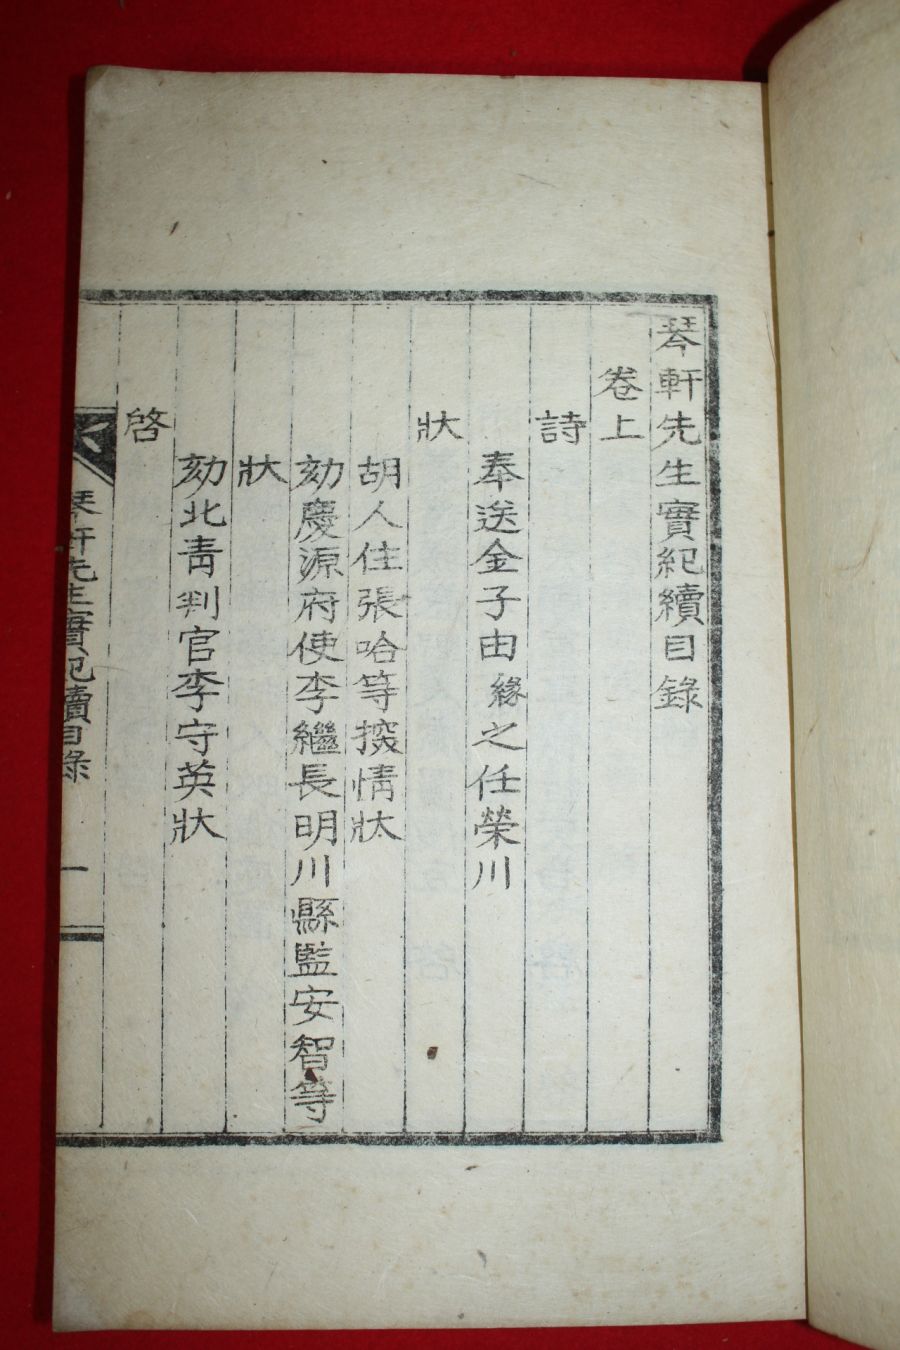 琴軒先生實紀續目錄
卷上
詩
奉送金子由緣之任榮川
狀
胡人住張哈等捘情狀
劾慶源府使李繼長明川縣監安智等
狀
劾北靑判官李守英狀
啓
琴軒先生實紀續目錄 一